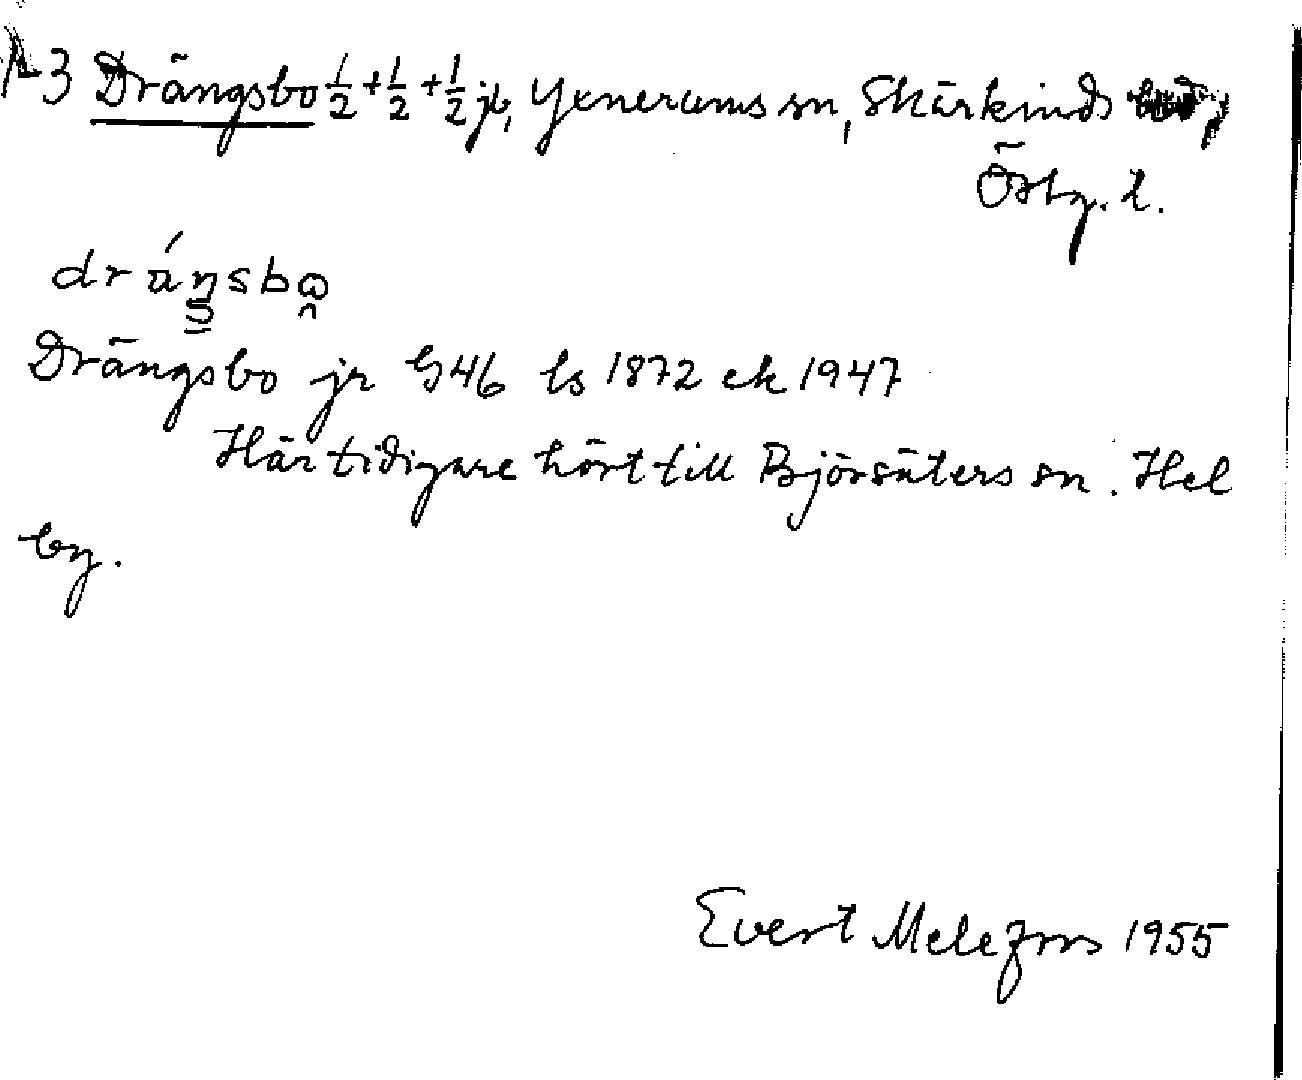 1-3 Drängsbo 1/2 + 1/2 + 1/2 jb, Yxnerums sn, Skärkinds
Östg. l.
Drängsbo jr G46 ls 1872 ek 1947
Har tidigare hört till Björsäters sn. Hel
by.
Evert Melefors 1955